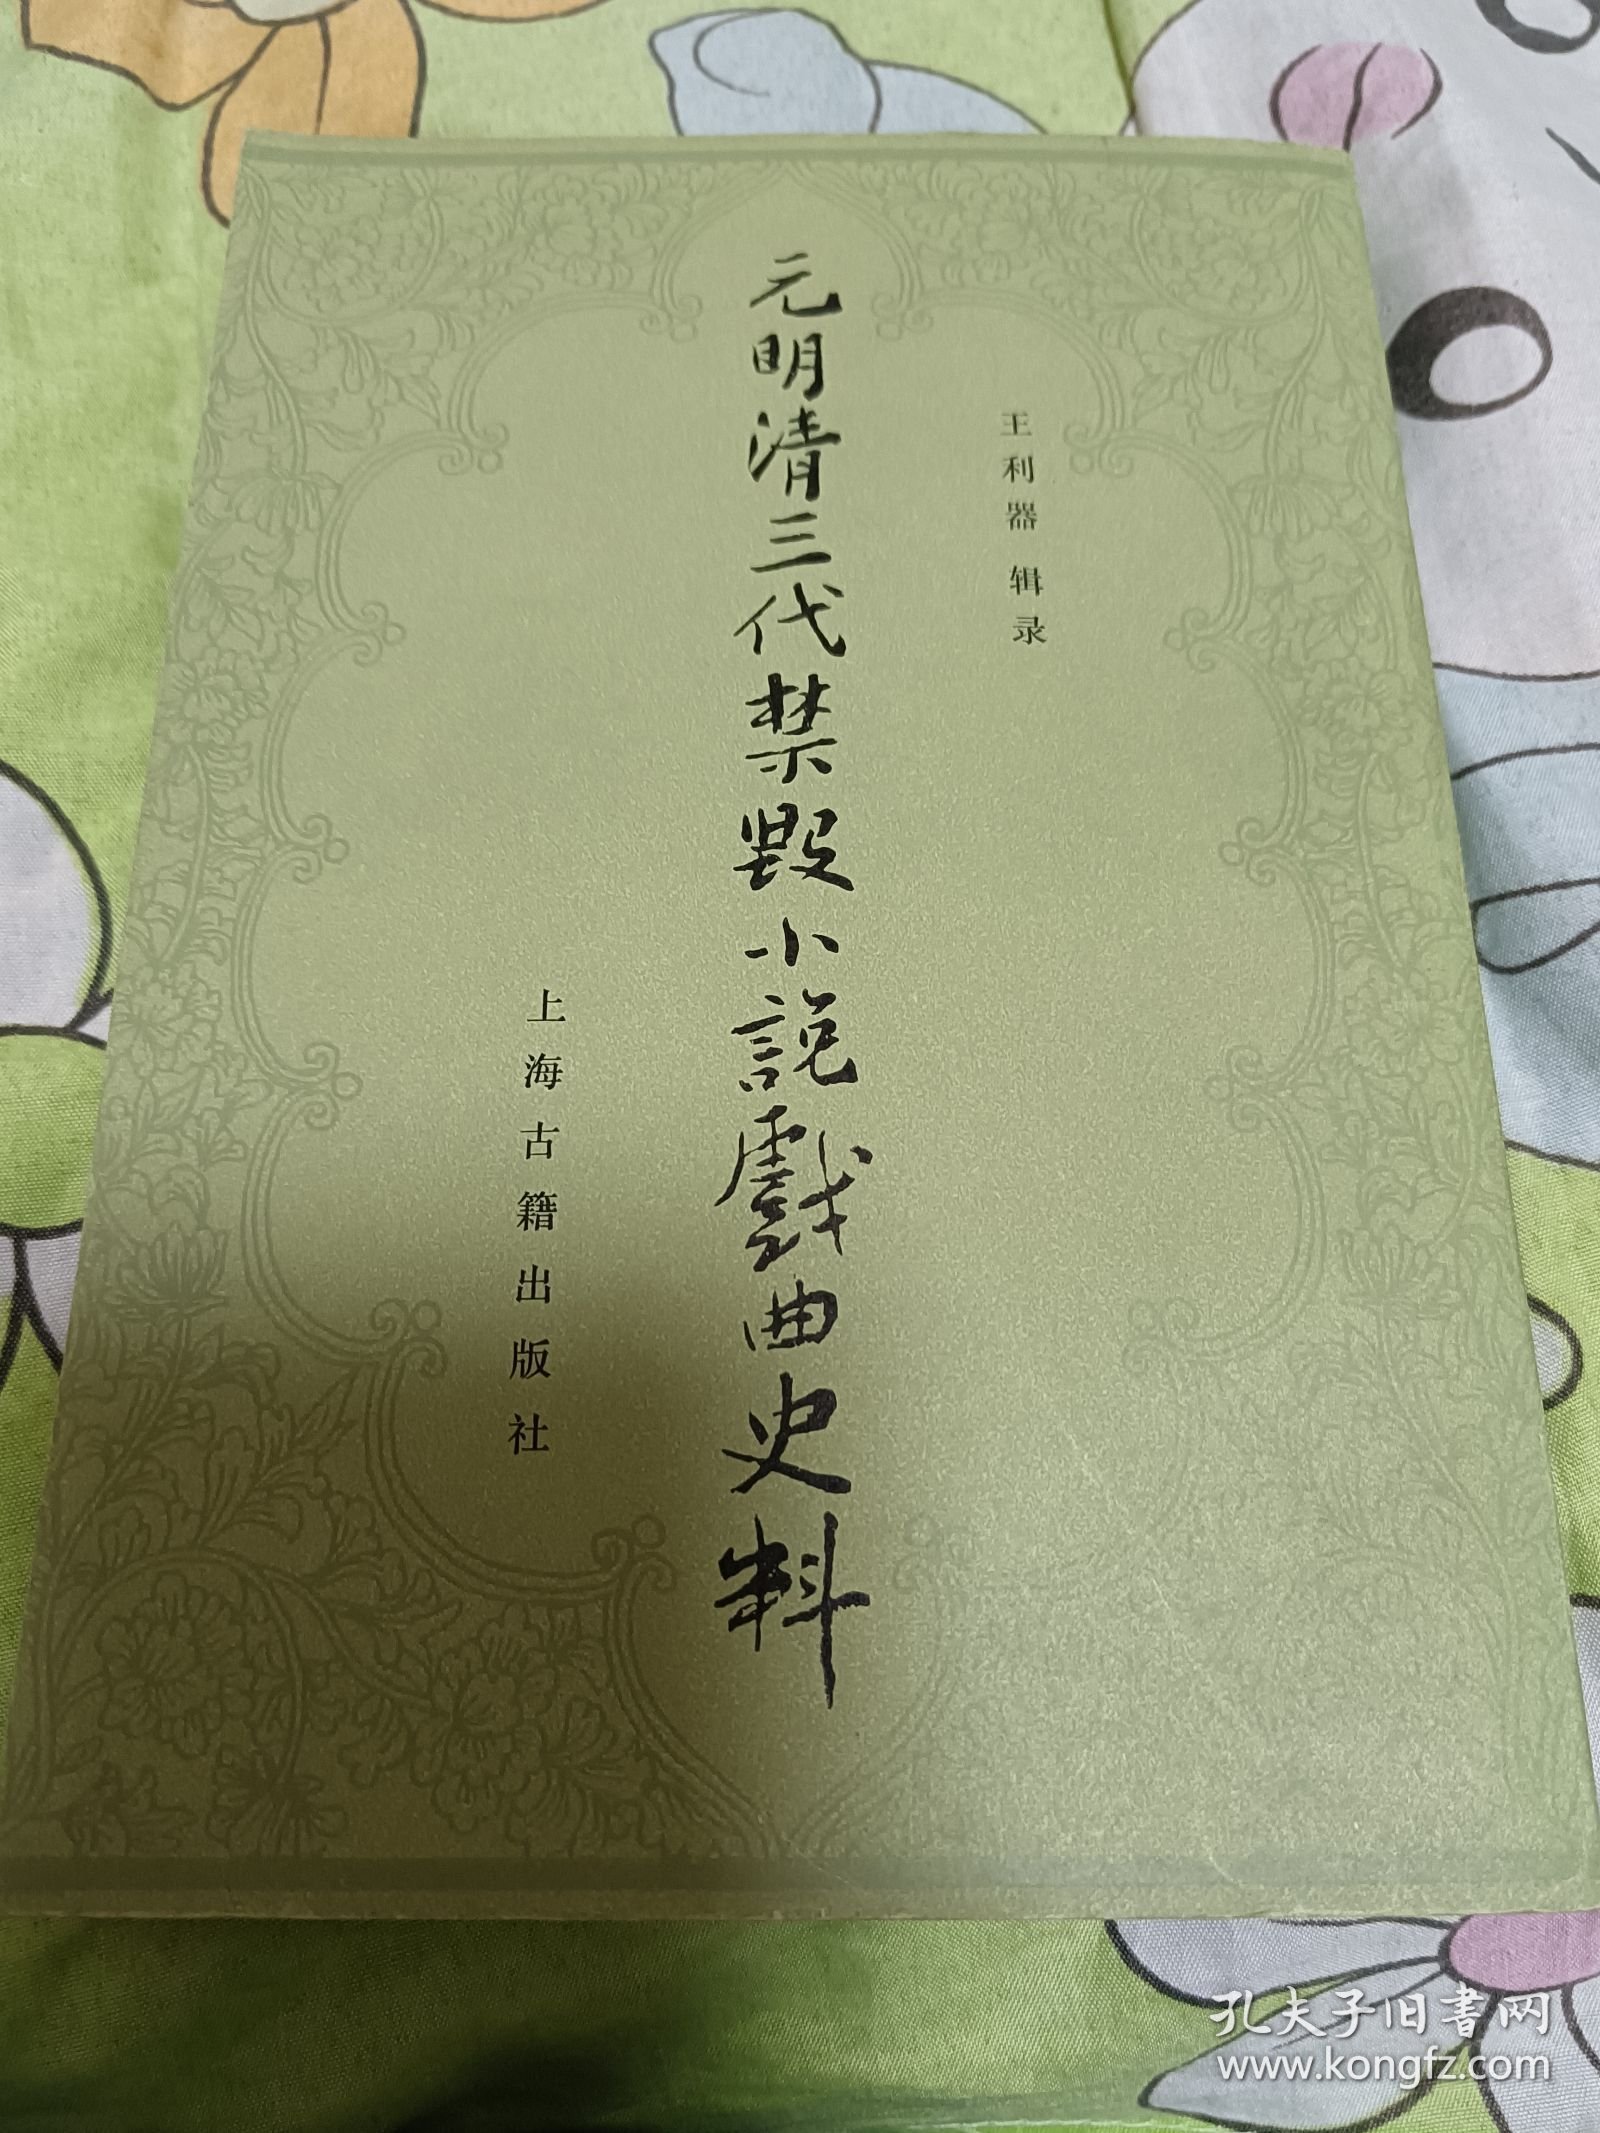 王利器 辑录
元明清三代禁毁小說戲曲史料
上海古籍出版社
孔夫子旧書网
www.kongfz.com